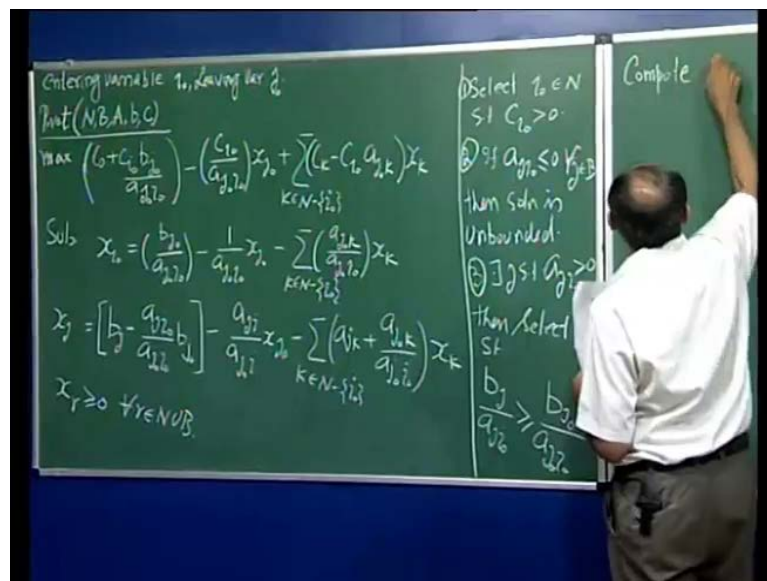 Entering variable i₀, Leaving var j₀.
Pivot(N,B,A,b,C)
max (C₀ + C_{i₀} b_{j₀} / a_{j₀i₀}) - (C_{i₀} / a_{j₀i₀}) x_{j₀} + Σ_{k∈N-{i₀}} (C_k - C_{i₀} a_{j₀k}) x_k
Sub. x_{i₀} = (b_{j₀} / a_{j₀i₀}) - 1/a_{j₀i₀} x_{j₀} - Σ_{k∈N-{i₀}} (a_{j₀k} / a_{j₀i₀}) x_k
x_j = [b_j - a_{ji₀} / a_{j₀i₀} b_{j₀}] - a_{ji} / a_{j₀i} x_{j₀} - Σ_{k∈N-{i₀}} (a_{jk} + a_{j₀k} / a_{j₀i₀}) x_k
x_r ≥ 0 ∀r∈N∪B.
① Select i₀ ∈ N
st C_{i₀} > 0.
② if a_{ji₀} ≤ 0 ∀j∈B
then soln is
unbounded.
③ ∃ j st a_{ji₀} > 0
then select
st
b_j / a_{ji₀} ≥ b_{j₀} / a_{j₀i₀}
Compute